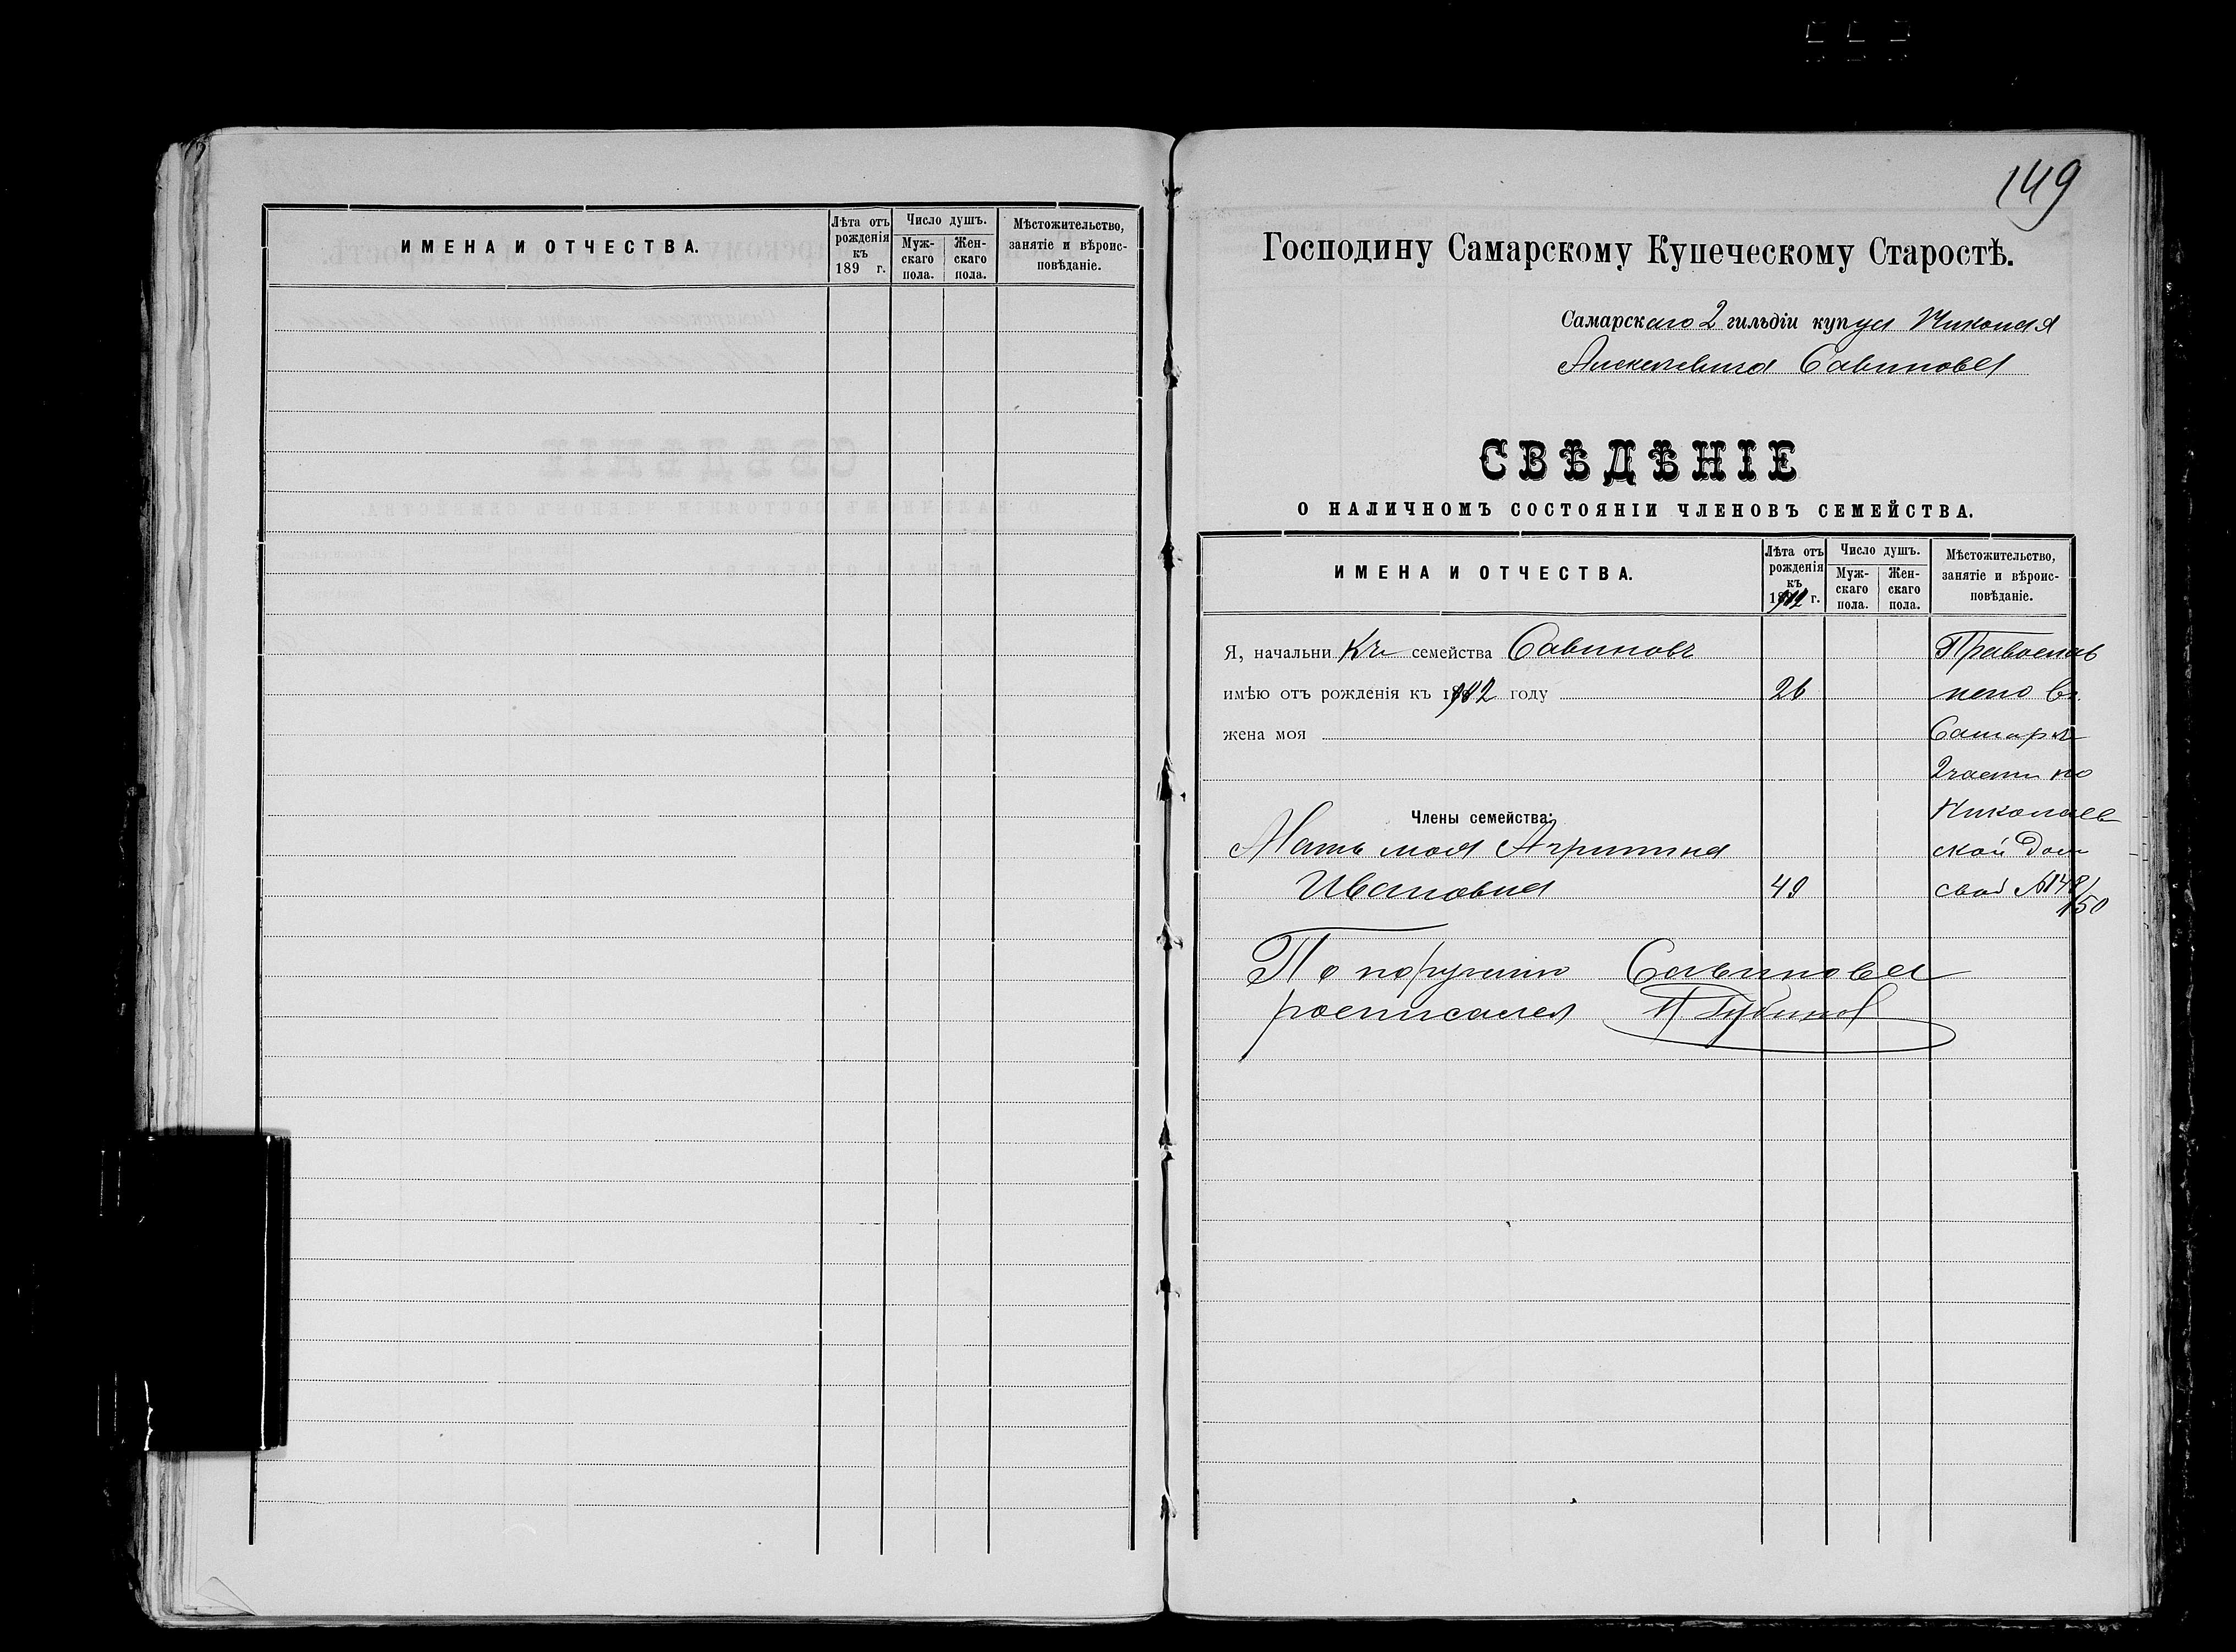 ИМЕНА И ОТЧЕСТВА.
Лѣта отъ рожденія къ 189 г.
Число душъ.
Мужскаго пола.
Женскаго пола.
Мѣстожительство, занятіе и вѣроисповѣданіе.
149
Господину Самарскому Купеческому Старостѣ.
Самарскаго 2 гильдіи купца Николая
Алексѣевича Савинова
СВѢДѢНІЕ
О НАЛИЧНОМЪ СОСТОЯНІИ ЧЛЕНОВЪ СЕМЕЙСТВА.
ИМЕНА И ОТЧЕСТВА.
Лѣта отъ рожденія къ 1912 г.
Число душъ.
Мужскаго пола.
Женскаго пола.
Мѣстожительство, занятіе и вѣроисповѣданіе.
Я, начальникъ семейства Савиновъ Православ
имѣю отъ рожденія къ 1912 году 26 наго Въ
жена моя Самарѣ
2 части по
Члены семейства: Николаев
Мать моя Агрипина ской дом
Ивановна 49 свой №148/150
По порученію Савинова
росписался Губинов